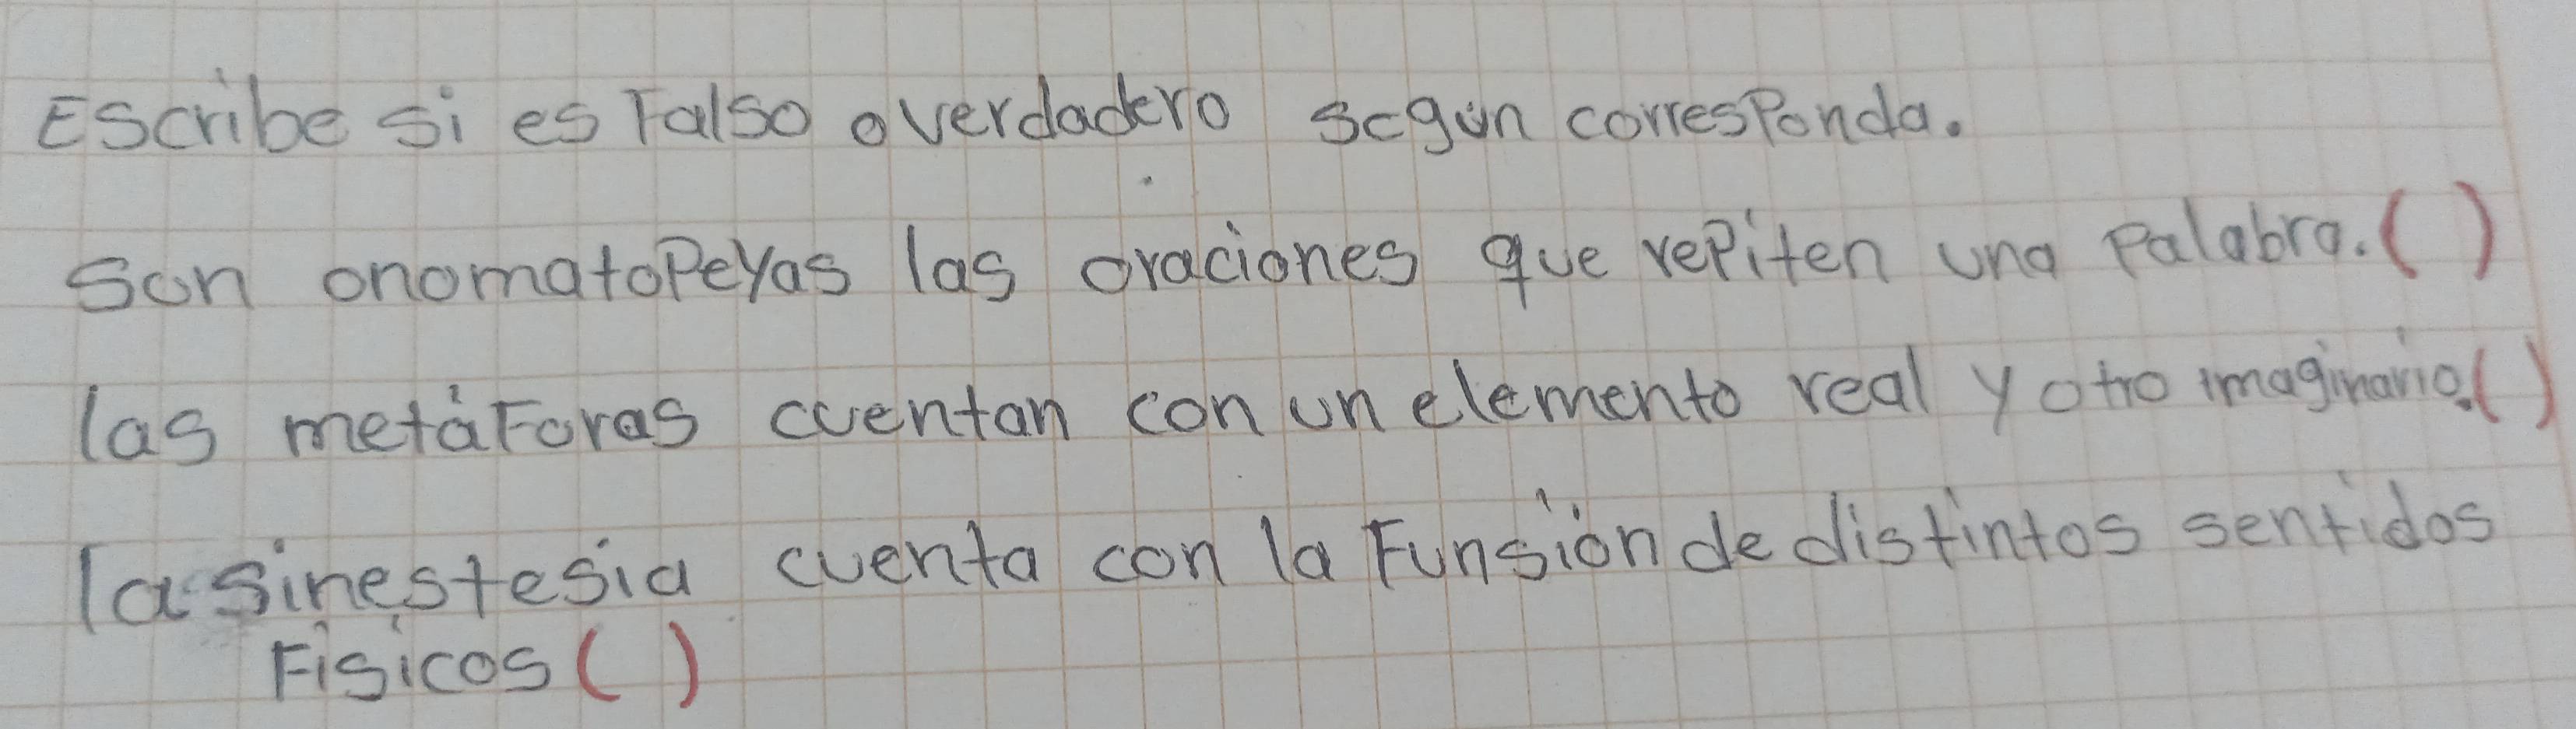 Escribe si es Falso o verdadero según corresponda.
Son onomatopeyas las oraciones que repiten una palabra. ( )
las metáforas cuentan con un elemento real y otro imaginario. ( )
la sinestesia cuenta con la Funsión de distintos sentidos
Físicos ( )